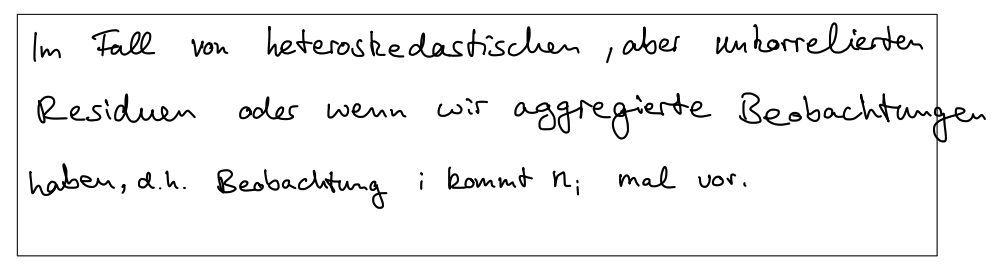 Im Fall von heteroskedastischen, aber unkorrelierten
Residuen oder wenn wir aggregierte Beobachtungen
haben, d.h. Beobachtung i kommt nᵢ mal vor.